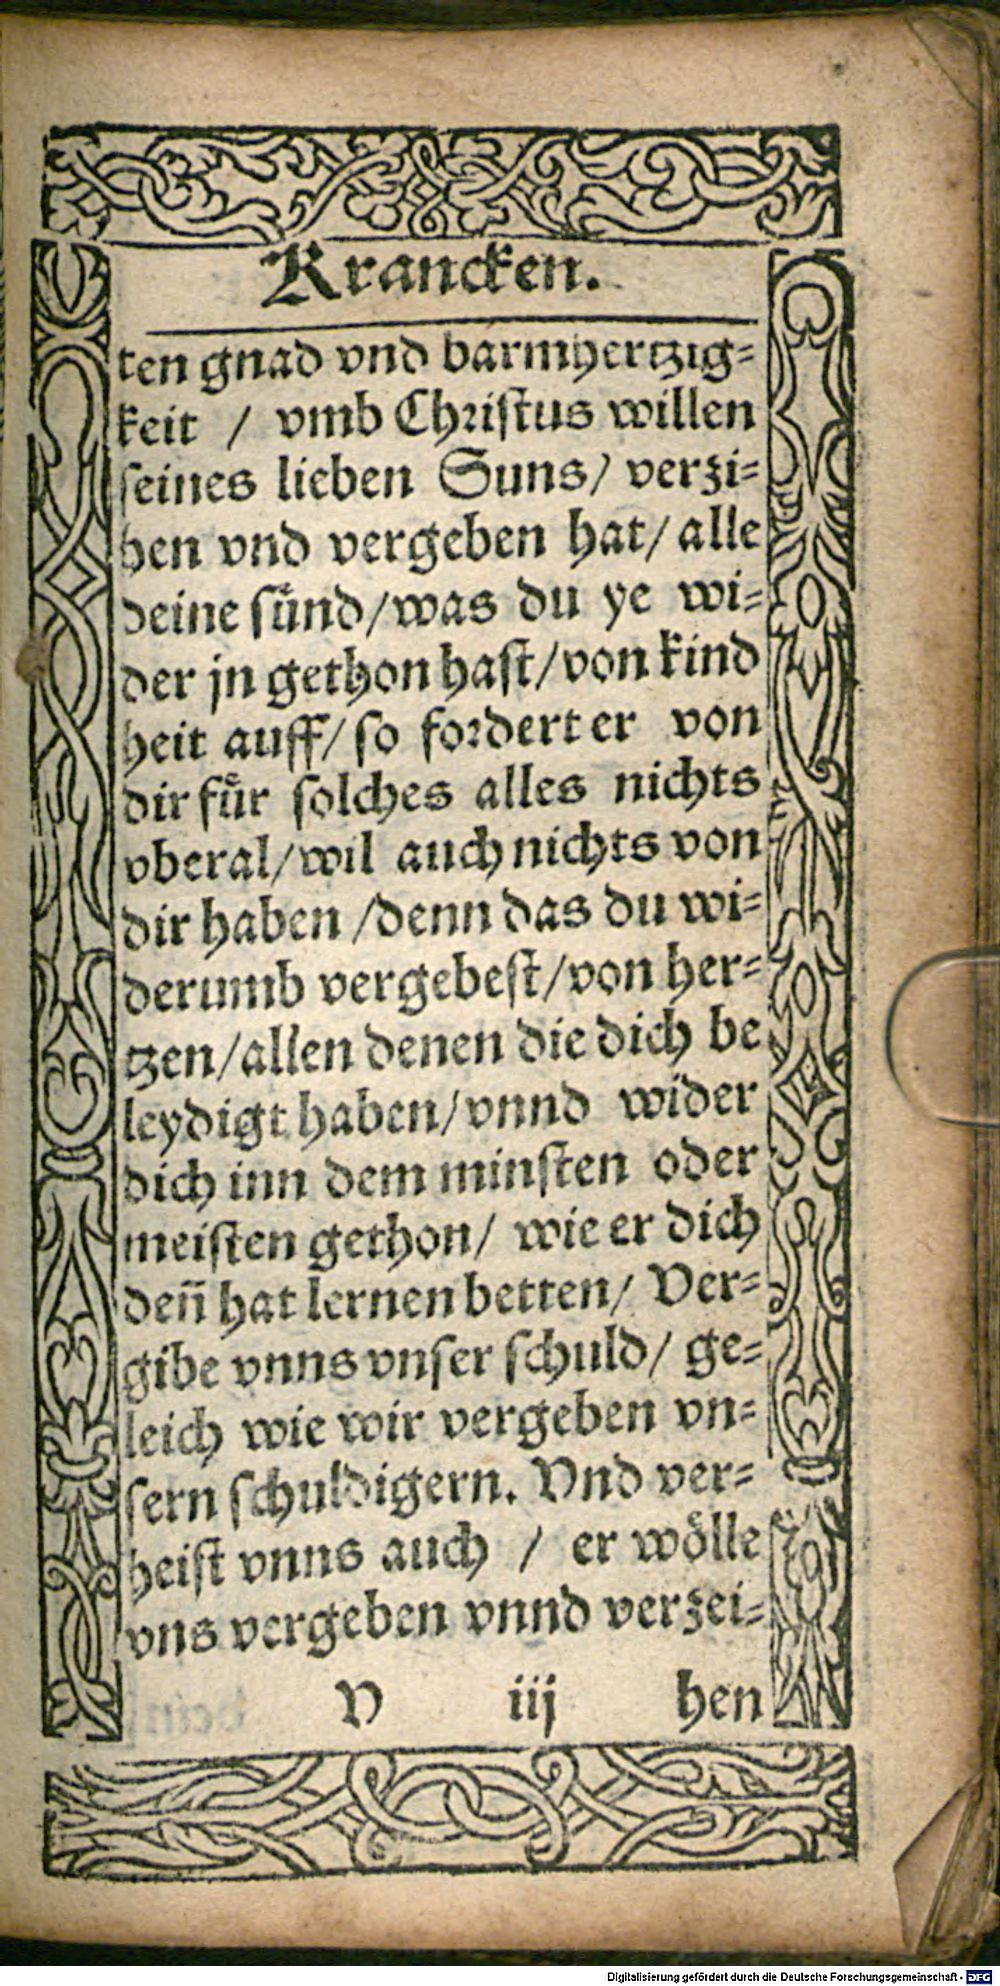 Krancken.
ten gnad vnd barmhertzig⸗
keit / vmb Christus willen
seines lieben Suns/ verzi⸗
hen vnd vergeben hat/ alle
deine sünd/was du ye wi⸗
der jn gethon hast/von kind
heit auff/ so fordert er von
dir für solches alles nichts
vberal/wil auch nichts von
dir haben /denn das du wi⸗
derumb vergebest/von her⸗
tzen/allen denen die dich be
leydigt haben/vnnd wider
dich inn dem minsten oder
meisten gethon/ wie er dich
deñ hat lernen betten/ Ver⸗
gibe vnns vnser schuld/ ge⸗
leich wie wir vergeben vn⸗
sern schuldigern. Vnd ver⸗
heist vnns auch / er wölle
vns vergeben vnnd verzei⸗
V iij hen
Digitalisierung gefördert durch die Deutsche Forschungsgemeinschaft - DFG